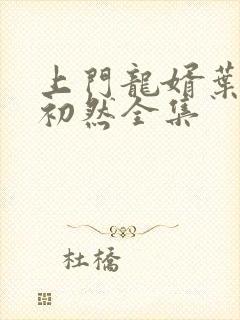 上門龍婿葉
初然全集
杜橋